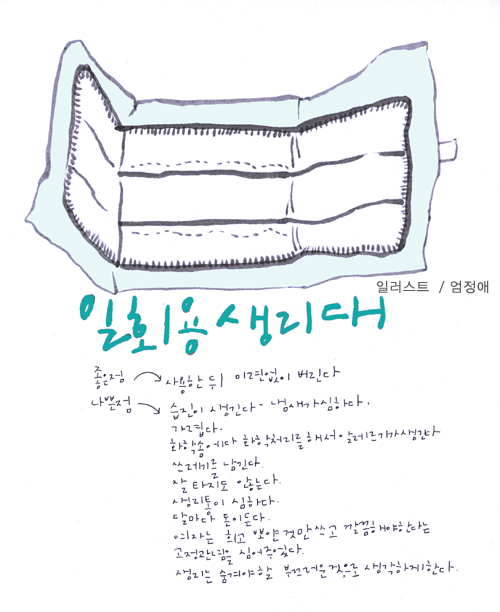 일러스트 / 엄정애
일회용 생리대
좋은점 → 사용한 뒤 미련없이 버린다
나쁜점 → 습진이 생긴다 - 냄새가 심하다.
가렵다.
화학솜에다 화학처리를 해서 알레르기가 생긴다
쓰레기를 남긴다.
잘 타지도 않는다.
생리통이 심하다.
달마다 돈이 든다.
여자는 희고 뽀얀 것만 쓰고 깔끔해야한다는
고정관념을 심어주었다.
생리는 숨겨야할 부끄러운것으로 생각하게한다.